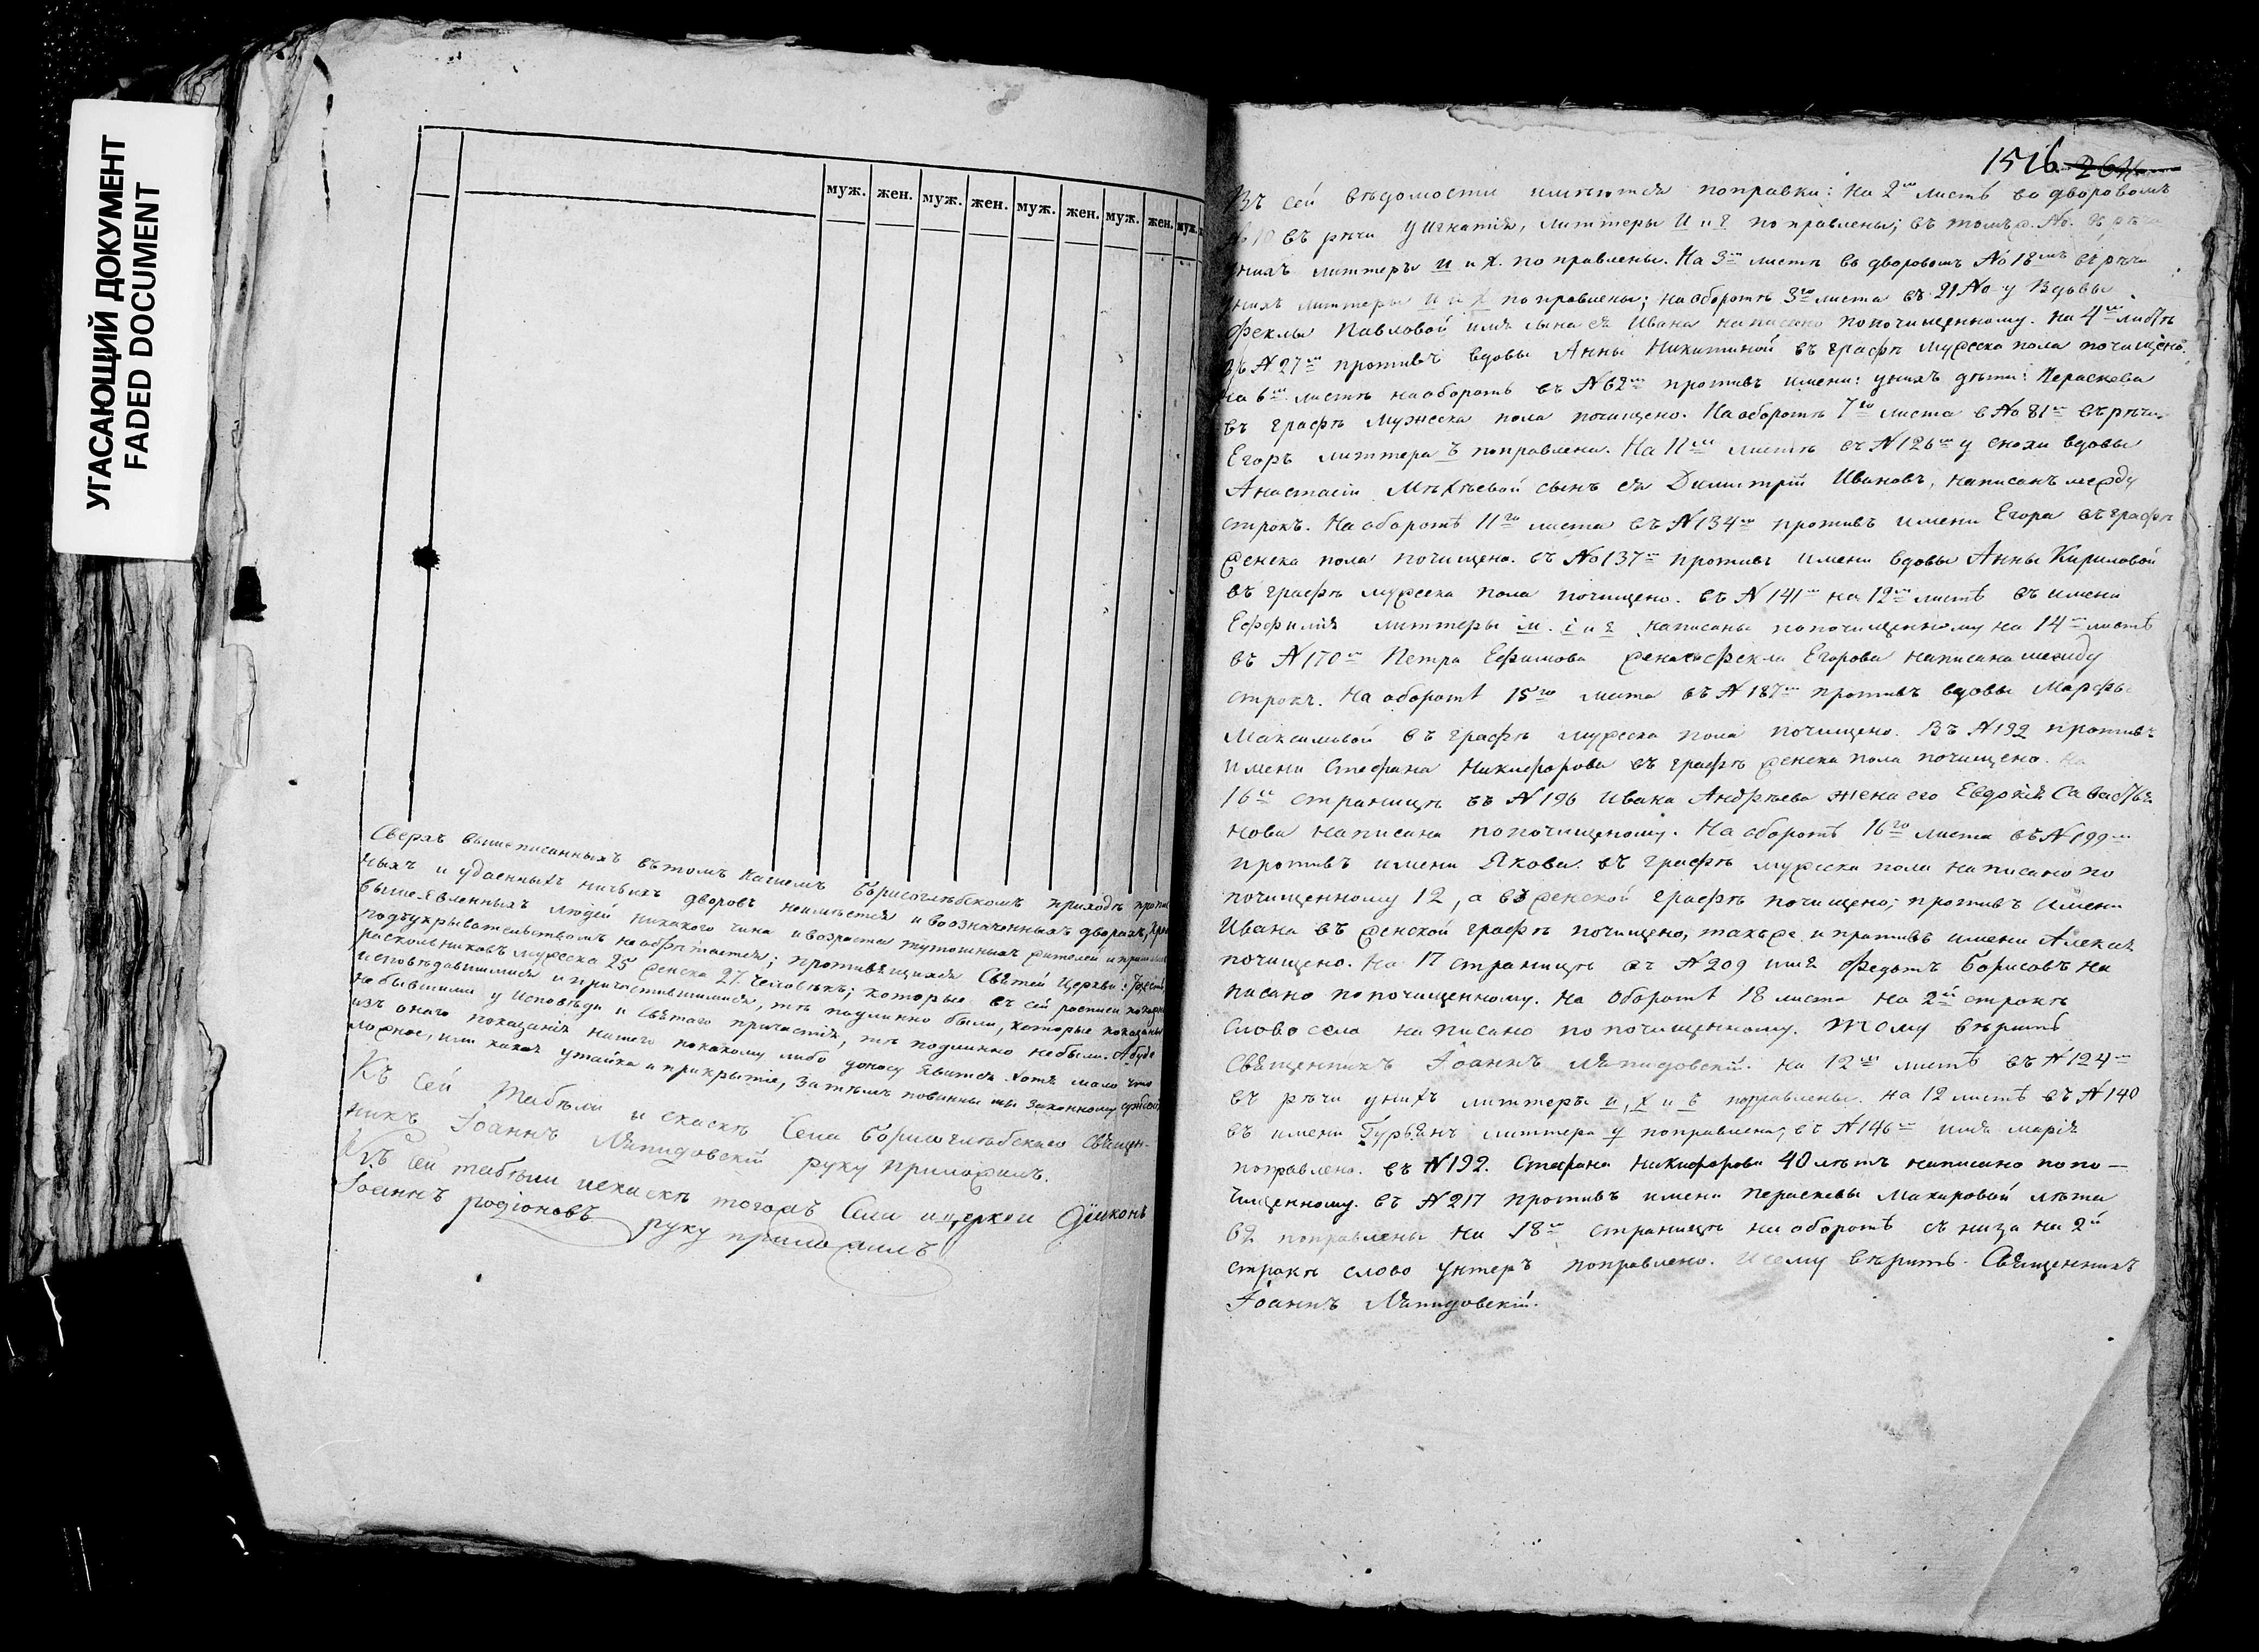 УГАСАЮЩИЙ ДОКУМЕНТ
FADED DOCUMENT
муж. жен. муж. жен. муж. жен. муж. жен. муж.
Сверхъ вышеписанныхъ въ томъ нашемъ Борисоглѣбскомъ приходѣ
ныхъ и удаенныхъ ничьихъ дворовъ неимѣется и воозначенныхъ дворахъ,
вышеявленныхъ людей никакого чина ивозраста тутошнихъ жителей и
подъукрывательствомъ необрѣтается; противящихся Святѣй Церкви:
раскольниковъ мужеска 25 женска 27. человѣкъ; которые въ сей росписи
исповѣдавшимися и причастившимися, тѣ подлинно были, которые показаны
небывшими у Исповѣди и Святаго причастія, тѣ подлинно небыли. А буде
изъ онаго показанія нашего покакому либо доносу явится хотя мало что
ложное, или какая утайка и прикрытіе, за тѣмъ повинны мы законному
Къ сей табѣли и сказкѣ Села Борисоглѣбскаго Священ-
никъ Іоаннъ Ляпидовскій руку приложилъ.
Къ сей табѣли исказкѣ тогожъ Села ицеркви Діаконъ
Іоаннъ родіоновъ руку приложилъ
1516.
Въ сей вѣдомости имѣются поправки: на 2мъ листѣ во дворовомъ
№ 10 въ рѣчи Уигнатія, литтеры и и я поправлены; въ томъже №.
униxъ литтеры и и х. поправлены. На 3мъ листѣ въ дворовомъ № 18мъ въ рѣчи
унихъ литтеры и и х поправлены; на оборотѣ 3го листа въ 21 № у Вдовы
Феклы Павловой имя сына ея Ивана написано попочищенному. на 4мъ листѣ
въ № 27мъ противъ вдовы Анны Никитиной въ графѣ мужеска пола почищено.
На 6мъ листѣ наоборотѣ въ № 62мъ противъ имени: унихъ дѣти: Параскева
въ графѣ мужеска пола почищено. На оборотѣ 7го листа в № 81мъ въ рѣчи
Егоръ литтера ъ поправлена. На 11мъ листѣ въ № 126мъ у снохи вдовы
Анастасіи сынъ ея Димитрій Ивановъ, написанъ между
строкъ. На оборотѣ 11го листа въ № 134мъ противъ имени Егора въ графѣ
женска пола почищено. въ № 137мъ противъ имени вдовы Анны Кириловой
въ графѣ мужеска пола почищено. въ № 141мъ на 12мъ листѣ въ имени
Ефиміи литтеры м. і и я написаны попочищенному на 14мъ листѣ
въ № 170мъ Петра Ефимова жена Фекла Егорова написана между
строкъ. На оборотѣ 15го листа въ № 187мъ противъ вдовы Марфы
Максимовой въ графѣ мужеска пола почищено. Въ № 192 противъ
имени Стефана Никифорова въ графѣ женска пола почищено. На
16й страницѣ въ № 196 Ивана Андрѣева жена его Евдокія Савастья
нова написана попочищеному. На оборотѣ 16го листа въ № 199мъ
противъ имени Якова въ графѣ мужеска пола написано по
почищенному 12, а въ женской графѣ почищено; противъ имени
Ивана въ женской графѣ почищено, такъже и противъ имени Алексія
почищено. На 17 страницѣ въ № 209 имя Федотъ Борисовъ на
писано попочищенному. На оборотѣ 18 листа на 2й строкѣ
слово села написано попочищенному. Тому вѣрить
Священникъ Іоаннъ Ляпидовскій. на 12мъ листѣ въ № 124мъ
въ рѣчи унихъ литтеры и, х и ъ поправлены. на 12 листѣ въ № 140
въ имени Гурьянъ литтера у поправлена; въ № 146мъ имя марія
поправлено. въ № 192. Стефана Никифорова 40 лѣтъ написано попо-
чищенному. въ № 217 противъ имени параскевы Макаровой лѣта
62 поправлены на 18й страницѣ на оборотѣ съ низа на 2й
строкѣ слово унтеръ поправлено. И сему вѣрить. Священникъ
Іоаннъ Ляпидовскій.